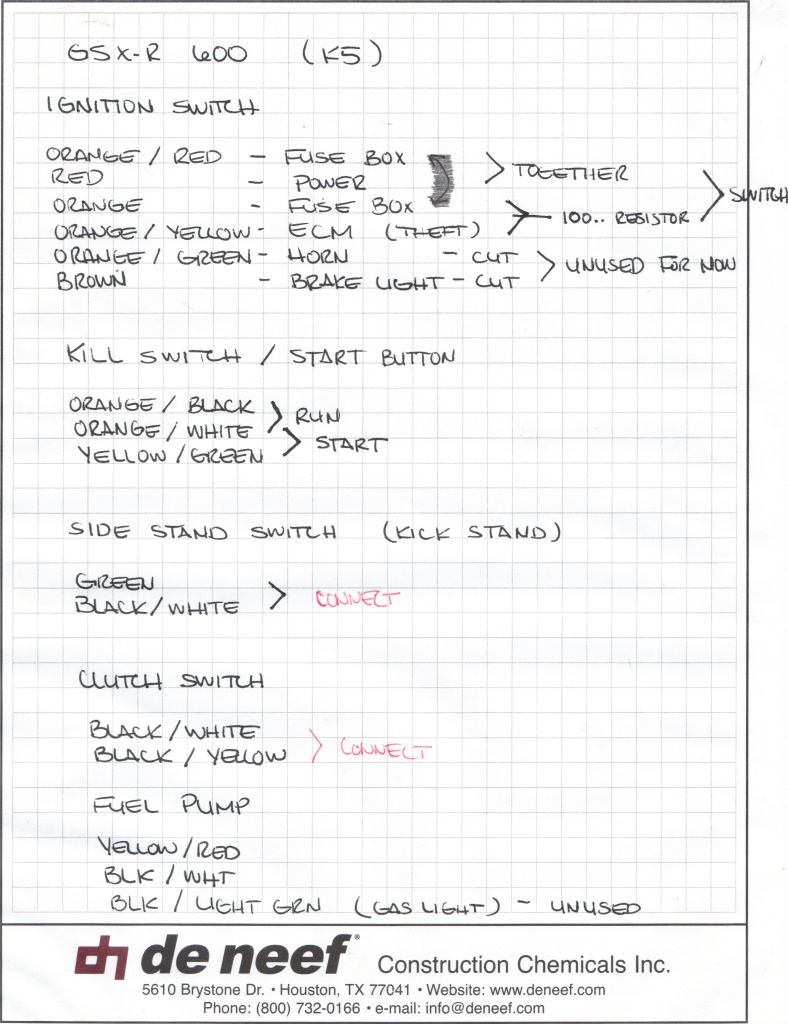 GSX-R 600 (K5)
IGNITION SWITCH
ORANGE / RED - FUSE BOX
RED - POWER > TOGETHER
ORANGE - FUSE BOX > SWITCH
ORANGE / YELLOW - ECM (THEFT) > 100.. RESISTOR
ORANGE / GREEN - HORN - CUT
BROWN - BRAKE LIGHT - CUT > UNUSED FOR NOW
KILL SWITCH / START BUTTON
ORANGE / BLACK > RUN
ORANGE / WHITE
YELLOW / GREEN > START
SIDE STAND SWITCH (KICK STAND)
GREEN
BLACK / WHITE > CONNECT
CLUTCH SWITCH
BLACK / WHITE
BLACK / YELLOW > CONNECT
FUEL PUMP
YELLOW / RED
BLK / WHT
BLK / LIGHT GRN (GAS LIGHT) - UNUSED
de neef® Construction Chemicals Inc.
5610 Brystone Dr. • Houston, TX 77041 • Website: www.deneef.com
Phone: (800) 732-0166 • e-mail: info@deneef.com